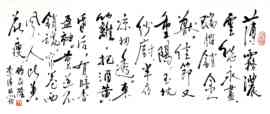 薄霧濃
雲愁永晝
瑞腦銷金
獸佳節又
重陽玉枕
紗廚半夜
涼初透東
籬把酒黃
昏後有暗香
盈袖莫道不
消魂簾卷西
風人比黃
花瘦
李清照